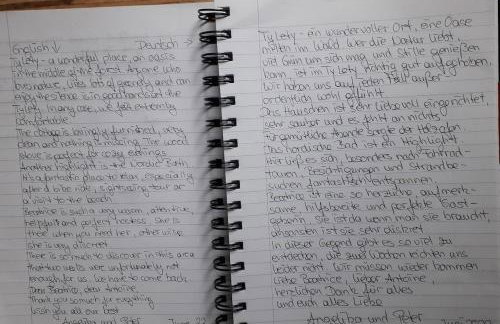 English ↓ Deutsch →
Tylety - a wonderful place, an oasis
in the middle of the forest. Anyone who
loves nature, likes lots of greenery and can
enjoy the silence is in good hands at the
Tylety. In any case, we felt extremely
comfortable.
The cottage is lovingly furnished, very
clean and nothing is missing. The wood
stove is perfect for cozy evenings.
Another highlight is the Nordic Bath.
It's a fantastic place to relax, especially
after a bike ride, sightseeing tour or
a visit to the beach.
Beatrice is such a very warm, attentive,
helpful and perfect hostess. She is
there when you need her, otherwise
she is very discreet.
There is so much to discover in this area
that two weeks were unfortunately not
enough for us. We have to come back.
Dear Beatrice, dear Antoine,
Thank you so much for everything
wish you all our best
Angelika und Peter June 23
Tylety - ein wundervoller Ort, eine Oase
mitten im Wald. Wer die Natur liebt,
viel Grün um sich mag und Stille genießen
kann, ist im Tylety richtig gut aufgehoben.
Wir haben uns auf jeden Fall außer-
ordentlich wohl gefühlt.
Das Häuschen ist sehr liebevoll eingerichtet,
sehr sauber und es fehlt an nichts.
Für gemütliche Abende sorgte der Holzofen.
Das nordische Bad ist ein Highlight.
Hier ließ es sich, besonders nach Fahrrad-
touren, Besichtigungen und Strandbe-
suchen fantastisch entspannen.
Beatrice ist eine so herzliche, aufmerk-
same, hilfsbereite und perfekte Gast-
geberin, sie ist da wenn man sie braucht,
ansonsten ist sie sehr diskret.
In dieser Gegend gibt es so viel zu
entdecken, die zwei Wochen reichten uns
leider nicht. Wir müssen wieder kommen.
Liebe Beatrice, lieber Antoine,
herzlichen Dank für alles
und euch alles Liebe
Angelika und Peter